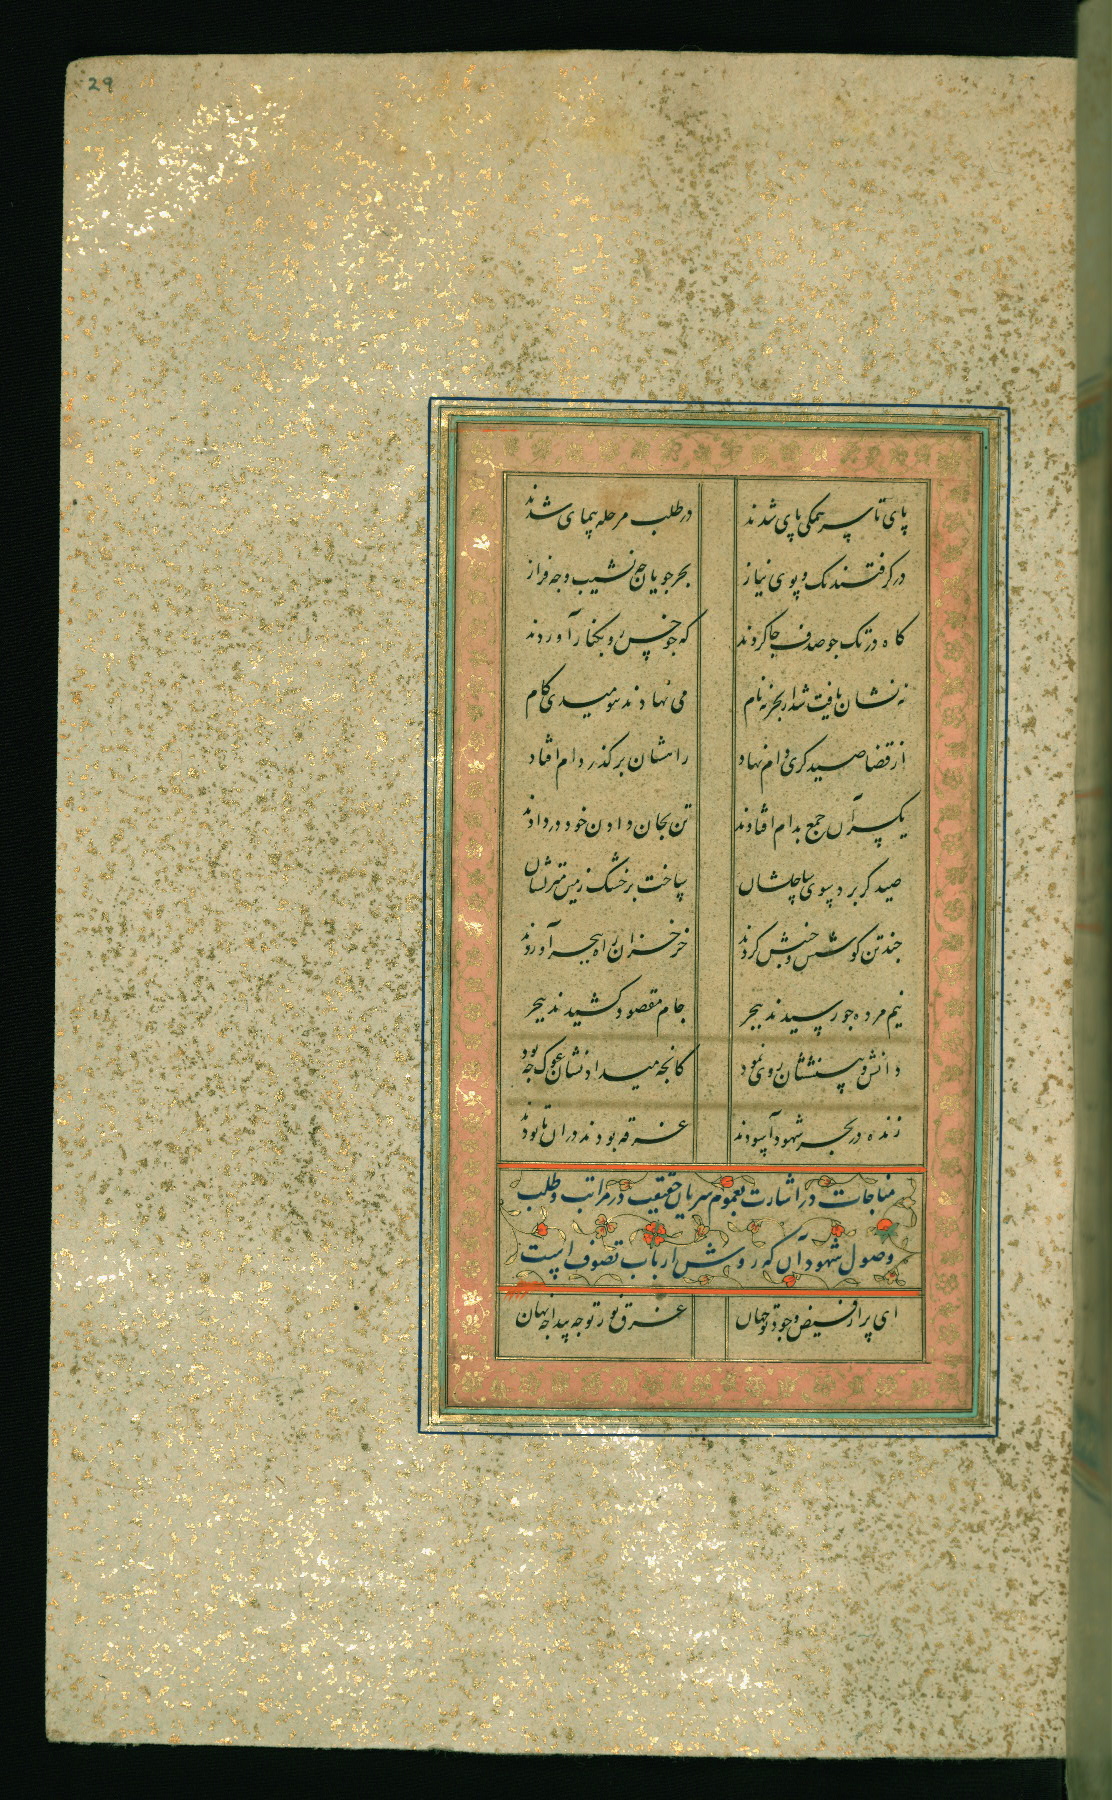 29
پای تا سر همگی پای شدند در طلب مرحله پیمای شدند
در گرفتند تک و پوی نیاز بحر جویان چه نشیب و چه فراز
گاه در تک چو صدف جا کردند گه چو خس رو بکنار آوردند
نه نشان یافت شد از بحر نه نام می نهادند بنومیدی کام
از قضا صید گری دام نهاد راهشان بر گذر دام افتاد
یکسر آن جمع بدام افتادند تن بجان دادن خود در دادند
صید گر برد بسوی ساحلشان ساخت بر خشک زمین منزلشان
چند تن کوشش و جنبش کردند خز خزان راه ببحر آوردند
نیم مرده چو رسیدند ببحر جام مقصود کشیدند ببحر
دانش و بینششان روی نمود کانچه میداد نشان غوک چه بود
زنده در بحر شهود آسودند غرقه بودند دران تا بودند
مناجات در اشارت بعموم سریان حقیقت در مراتب و طلب
وصول شهود آن که روش ارباب تصوف است
ای پر از فیض وجود تو جهان غرق نور تو چه پیدا چه نهان